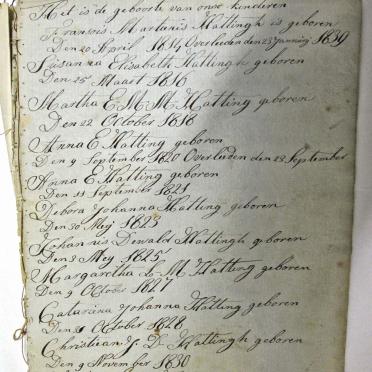 Het is de geboorte van onse kinderen
Fransois Martinus Hattingh is geboren
Den 20 April 1814 Overleeden den 23 Januarij 1839
Susanna Elisabeth Hattingh geboren
Den 25 Maart 1816
Martha E M M Hatting geboren
Den 22 October 1818
Anna E Hatting geboren
Den 9 September 1820 Overleeden den 29 September
Anna E Hatting geboren
Den 11 September 1821
Debora Johanna Hatting geboren
Den 30 Meij 1823
Johannis Dewald Hattingh geboren
Den 3 Mey 1825
Margaretha M Hatting geboren
Den 9 October 1827
Catarina Johanna Hatting geboren
Den October 1828
Christiaan J D Hattingh geboren
Den 9 November 1830